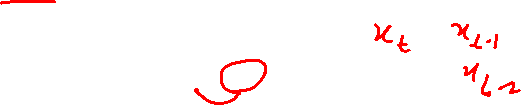 x_t x_{t-1}
x_{t-2}